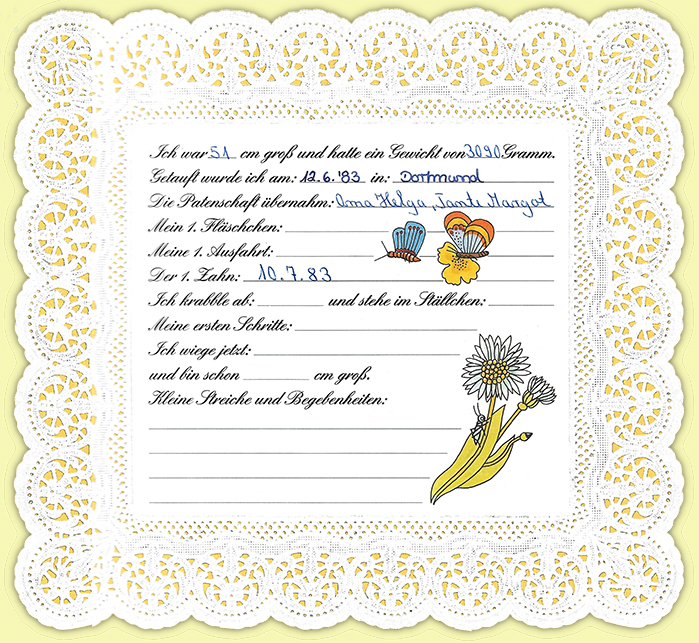 Ich war 51 cm groß und hatte ein Gewicht von 3090 Gramm.
Getauft wurde ich am: 12.6.'83 in: Dortmund
Die Patenschaft übernahm: Oma Helga, Tante Margot
Mein 1. Fläschchen:
Meine 1. Ausfahrt:
Der 1. Zahn: 10.7.83
Ich krabble ab: und stehe im Ställchen:
Meine ersten Schritte:
Ich wiege jetzt:
und bin schon cm groß.
Kleine Streiche und Begebenheiten: